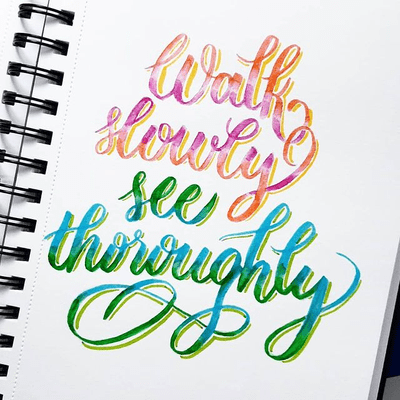 Walk
slowly
see
thoroughly